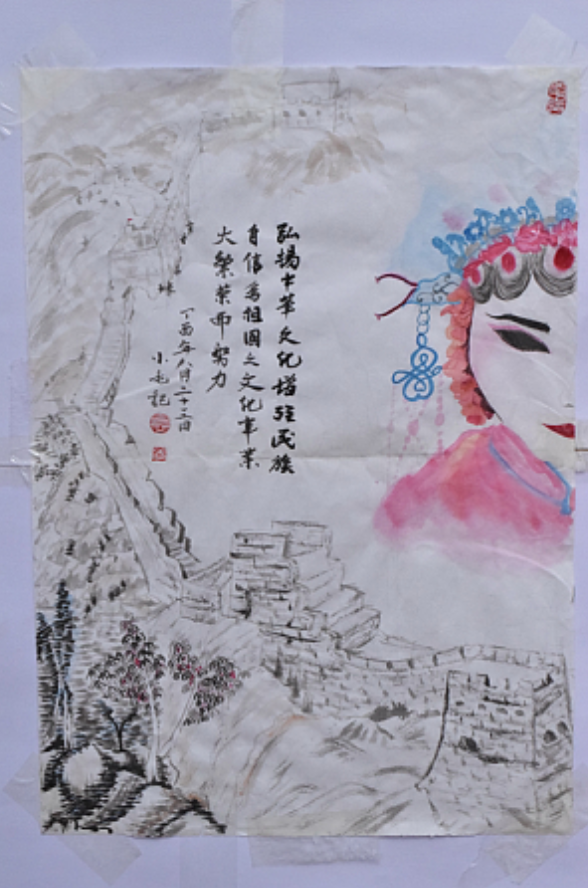 弘扬中华文化增强民族
自信为祖国之文化事业
大繁荣而努力
丁酉年八月二十二日
小毛记